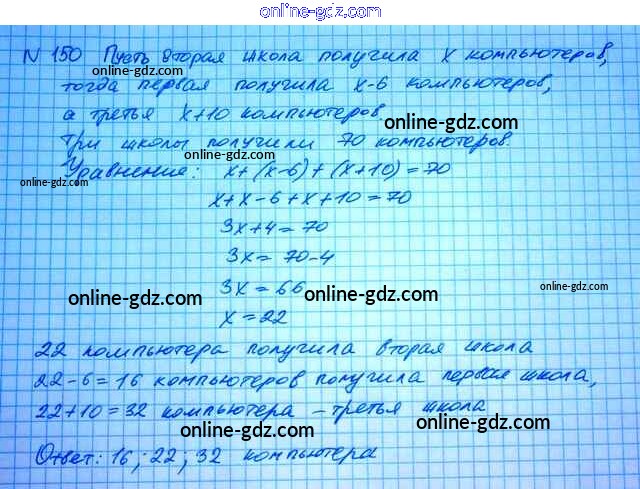 online-gdz.com
N 150 Пусть вторая школа получила x компьютеров,
online-gdz.com
тогда первая получила x-6 компьютеров,
а третья x+10 компьютеров.
online-gdz.com
Три школы получили 70 компьютеров.
online-gdz.com
Уравнение: x+(x-6)+(x+10)=70
online-gdz.com
x+x-6+x+10=70
3x+4=70
3x=70-4
3x=66
online-gdz.com online-gdz.com online-gdz.com
x=22
22 компьютера получила вторая школа
22-6=16 компьютеров получила первая школа,
22+10=32 компьютера - третья школа
online-gdz.com online-gdz.com
Ответ: 16; 22; 32 компьютера
online-gdz.com